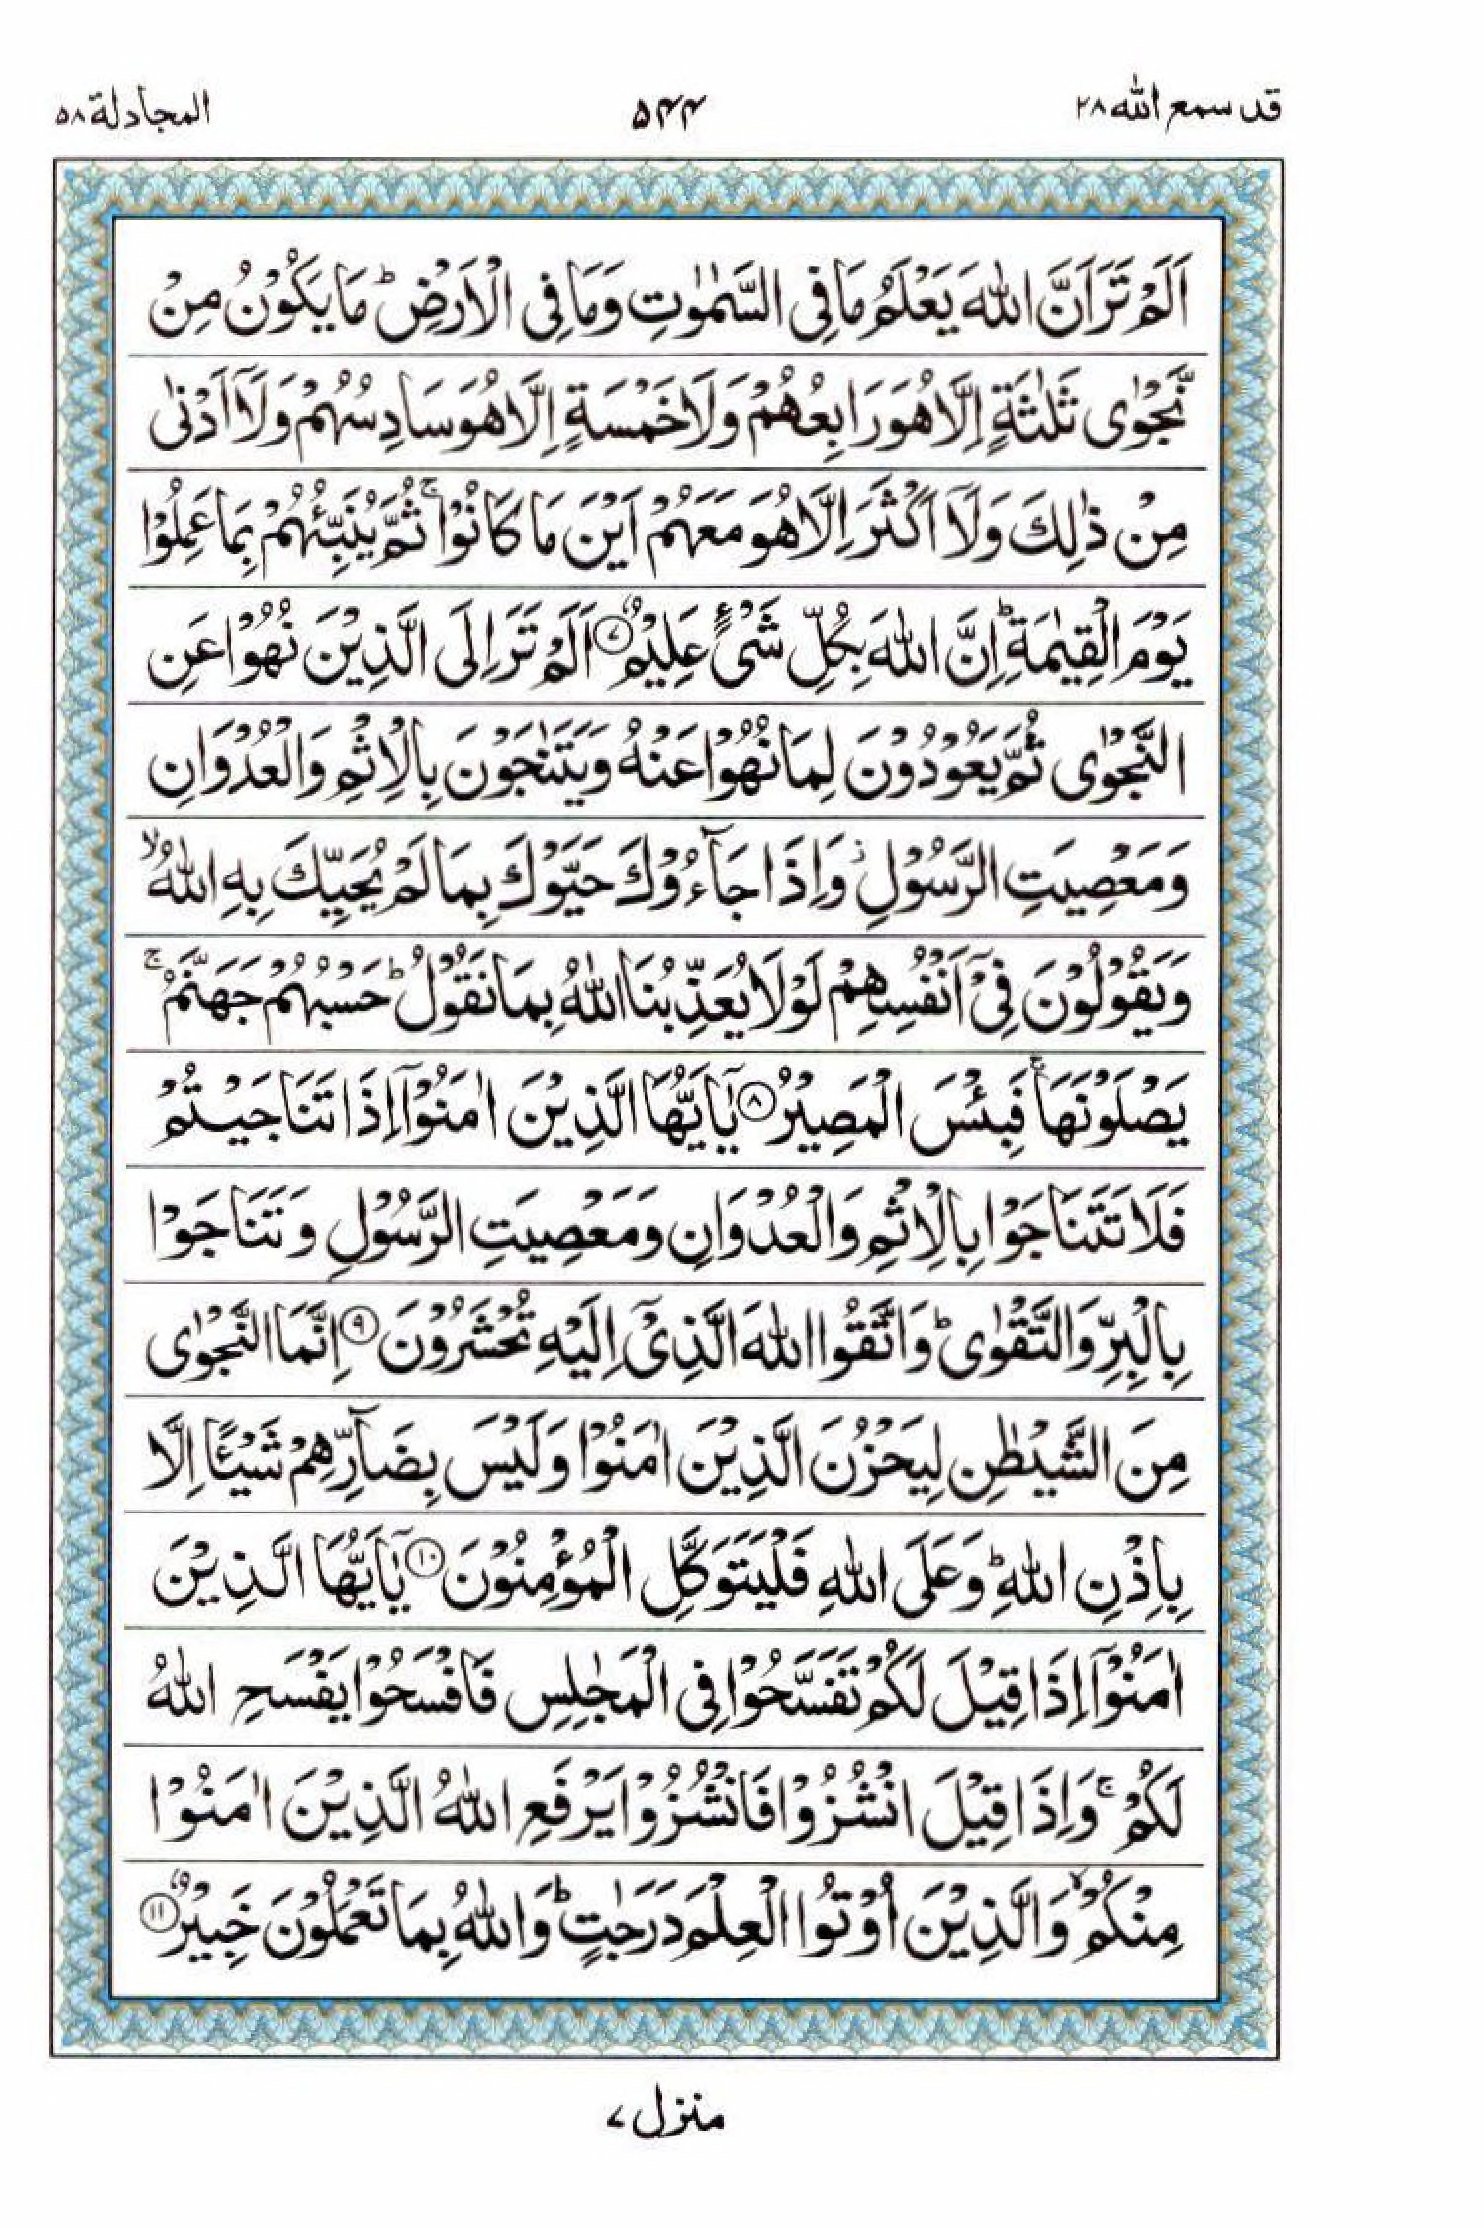 قد سمع الله ٢٨
۵۴۴
المجادلة ۵۸
اَلَمْ تَرَ اَنَّ اللّٰهَ يَعْلَمُ مَا فِي السَّمٰوٰتِ وَمَا فِي الْاَرْضِ ؕ مَا يَكُوْنُ مِنْ
نَّجْوٰى ثَلٰثَةٍ اِلَّا هُوَ رَابِعُهُمْ وَلَا خَمْسَةٍ اِلَّا هُوَ سَادِسُهُمْ وَلَاۤ اَدْنٰى
مِنْ ذٰلِكَ وَلَاۤ اَكْثَرَ اِلَّا هُوَ مَعَهُمْ اَيْنَ مَا كَانُوْا ۚ ثُمَّ يُنَبِّئُهُمْ بِمَا عَمِلُوْا
يَوْمَ الْقِيٰمَةِ ؕ اِنَّ اللّٰهَ بِكُلِّ شَيْءٍ عَلِيْمٌ ۷ اَلَمْ تَرَ اِلَى الَّذِيْنَ نُهُوْا عَنِ
النَّجْوٰى ثُمَّ يَعُوْدُوْنَ لِمَا نُهُوْا عَنْهُ وَيَتَنٰجَوْنَ بِالْاِثْمِ وَالْعُدْوَانِ
وَمَعْصِيَتِ الرَّسُوْلِ ؗ وَاِذَا جَآءُوْكَ حَيَّوْكَ بِمَا لَمْ يُحَيِّكَ بِهِ اللّٰهُ ۙ
وَيَقُوْلُوْنَ فِيْۤ اَنْفُسِهِمْ لَوْلَا يُعَذِّبُنَا اللّٰهُ بِمَا نَقُوْلُ ؕ حَسْبُهُمْ جَهَنَّمُ ۚ
يَصْلَوْنَهَا ۚ فَبِئْسَ الْمَصِيْرُ ۸ يٰۤاَيُّهَا الَّذِيْنَ اٰمَنُوْۤا اِذَا تَنَاجَيْتُمْ
فَلَا تَتَنَاجَوْا بِالْاِثْمِ وَالْعُدْوَانِ وَمَعْصِيَتِ الرَّسُوْلِ وَتَنَاجَوْا
بِالْبِرِّ وَالتَّقْوٰى ؕ وَاتَّقُوا اللّٰهَ الَّذِيْۤ اِلَيْهِ تُحْشَرُوْنَ ۹ اِنَّمَا النَّجْوٰى
مِنَ الشَّيْطٰنِ لِيَحْزُنَ الَّذِيْنَ اٰمَنُوْا وَلَيْسَ بِضَآرِّهِمْ شَيْـًٔا اِلَّا
بِاِذْنِ اللّٰهِ ؕ وَعَلَى اللّٰهِ فَلْيَتَوَكَّلِ الْمُؤْمِنُوْنَ ۱۰ يٰۤاَيُّهَا الَّذِيْنَ
اٰمَنُوْۤا اِذَا قِيْلَ لَكُمْ تَفَسَّحُوْا فِي الْمَجٰلِسِ فَافْسَحُوْا يَفْسَحِ اللّٰهُ
لَكُمْ ۚ وَاِذَا قِيْلَ انْشُزُوْا فَانْشُزُوْا يَرْفَعِ اللّٰهُ الَّذِيْنَ اٰمَنُوْا
مِنْكُمْ ۙ وَالَّذِيْنَ اُوْتُوا الْعِلْمَ دَرَجٰتٍ ؕ وَاللّٰهُ بِمَا تَعْمَلُوْنَ خَبِيْرٌ ۱۱
منزل ۷